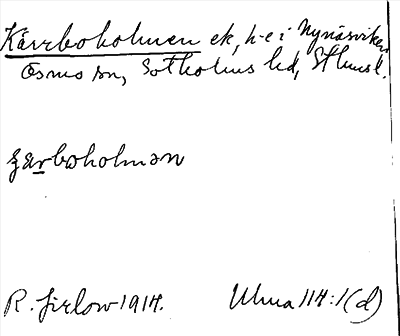 Kärrboholmen ek, h-e i Nynäsviken
Ösmo sn, Sotholms hd, Sthms l.
R. Jirlow 1914. Ulma 114:1(d)